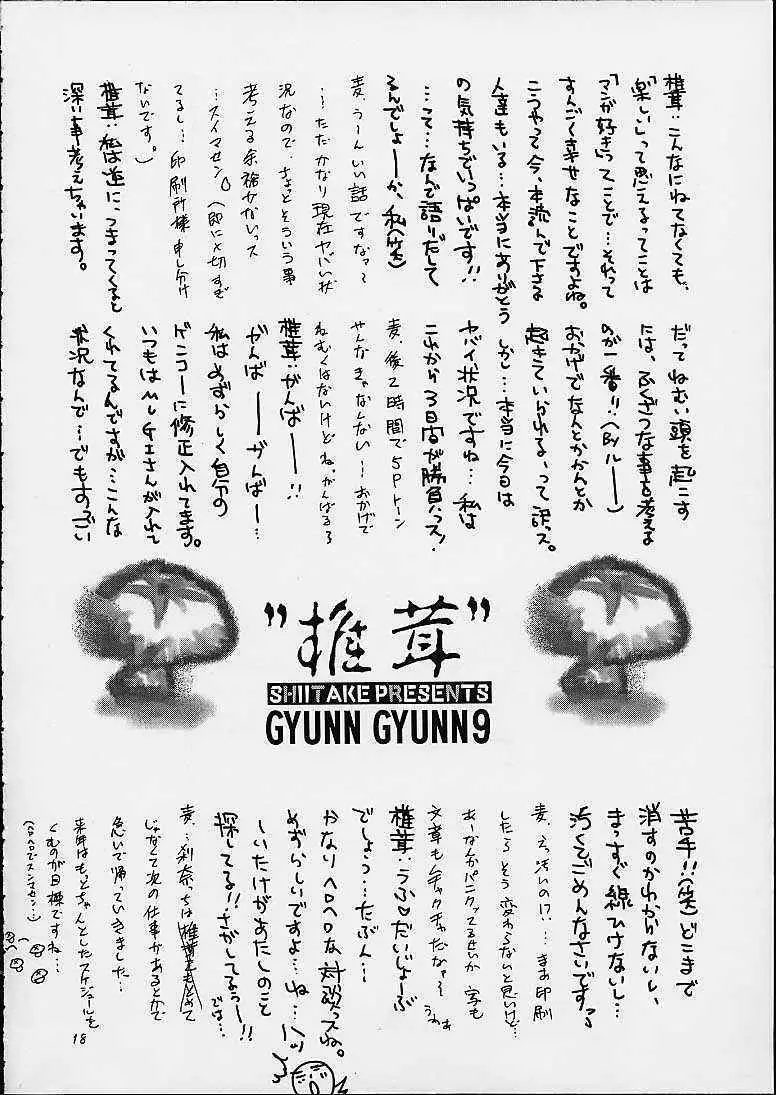 椎茸:こんなにねてなくても、
「楽しい」って思えるってことは
「マンガ好き」ってことで…それって
すんごく幸せなことですよね。
こうやって今、本読んで下さる
人達もいる…本当にありがとう
の気持ちでいっぱいです!!
…って…なんで語りだして
るんでしょーか、私(笑)
麦:うーんいい話ですなァ〜
…ただかなり現在ヤバい状
況なので、ちょっとそういう事
考える余裕がないっス
…スイマセン(即に〆切すぎ
てるし…印刷所様申し分け
ないです。)
椎茸:私は逆に、つまってくると
深い事考えちゃいます。
だってねむい頭を起こす
には、ふくざつな事を考える
のが一番!!(即ルーー)
おかげでなんとかかんとか
起きていられるって訳っス。
しかし…本当に今日は
ヤバイ状況ですね…私は
これから3日間が勝負っス!
麦:後2時間で5Pトーン
やんなきゃなんない…おかげで
ねむくはないけどね、がんばるろ
椎茸:がんばーー!!
がんばーーがんばー…
私はめずらしく自分の
ゲンコーに修正入れてます。
いつもはMUGIさんが入れて
くれてるんですが…こんな
状況なんで…でもすっごい
"椎茸"
SHIITAKE PRESENTS
GYUNN GYUNN 9
苦手!!(笑)どこまで
消すのかわからないし、
まっすぐ線ひけないし…
汚くてごめんなさいですっ
麦:えっ汚いの!?…まあ印刷
したらそう変わらないと思いけど…
あーなんかパニクッてるせいか字も
文章もメチャクチャだなァ〜
うわぁ
椎茸:うふ♡だいじょーぶ
でしょう…たぶん…
かなりヘロヘロな対談っスね。
めずらしいですよ…ね…ハッ
しいたけがあたしのこと
探してる!!さがしてるぅー!!
では…
麦:…刹奈っちは椎茸をもとめて
じゃなくて次の仕事があるとかで
急いで帰っていきました…
来年はもっとちゃんとしたスケジュールを
くむのが目標ですね…
(ヘロヘロでスンマセン…)
18